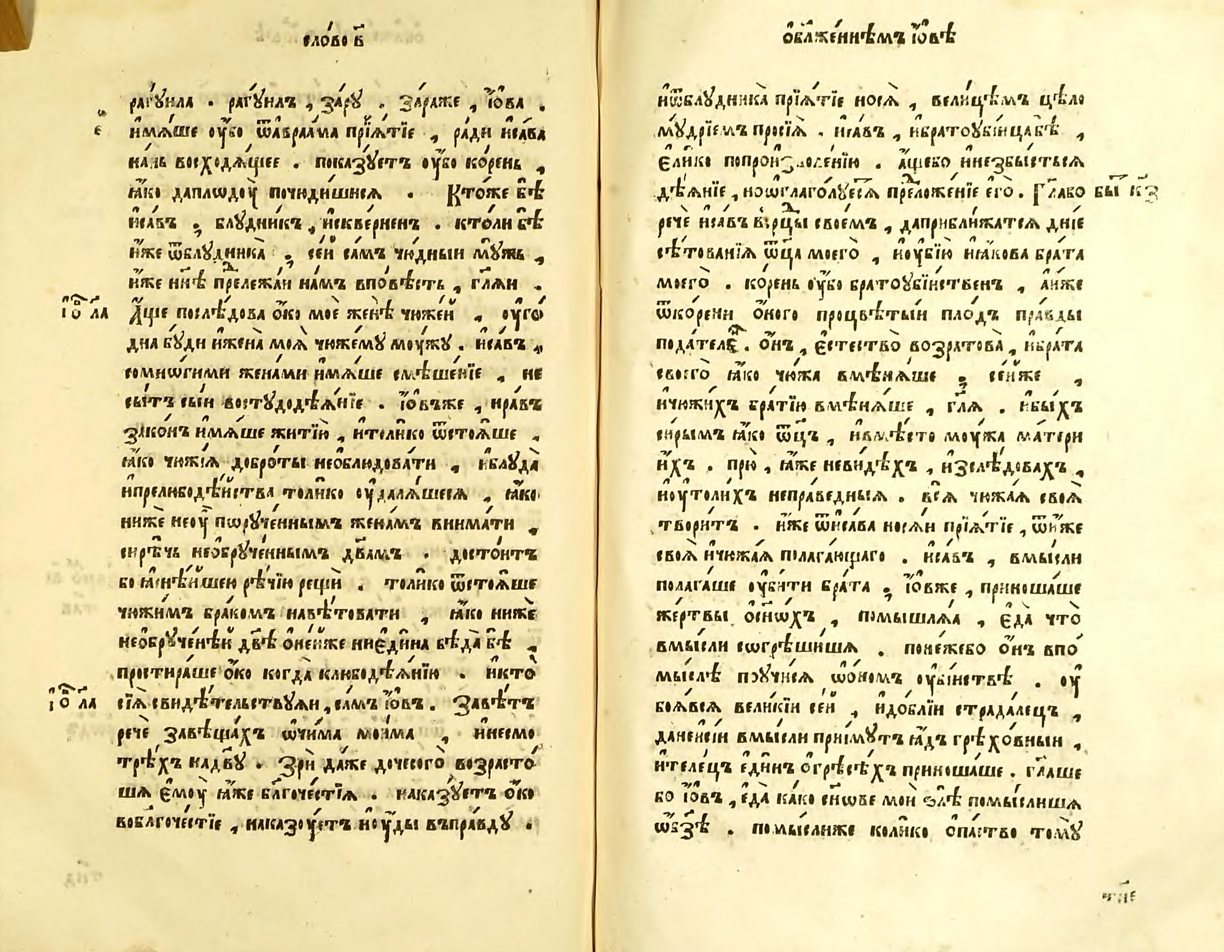 сло́во в҃
рагꙋ́ила . рагꙋ́илъ , за́рꙋ . за́раже , і҆́ова .
є
имѧ́ше оу҆́бо ѿавраа́ма прїѧ́тїе , ра́ди иса́ва
на́нь восходѧ́щее . показꙋ́етъ оу҆́бо ко́рень ,
ꙗ҆́ко даплѡдоу̀ почюди́шисѧ . Кто́же бѣ̀
иса́въ , блꙋдни́къ , искве́рненъ . кто́ли бѣ̀
и҆́же ѿблꙋдника̀ , се́й са́мъ чю́дныи мꙋ́жь ,
и҆́же нн҃ѣ прележа́и на́мъ впо́вѣсть , гл҃ѧи .
і҆́о гла
А҆́ще послѣ́дова о҆́ко моѐ женѣ̀ чюже́й , оуго́
дна бꙋ́ди ижена̀ моѧ̀ чюже́мꙋ мо́ужꙋ . иса́въ ,
сомно́гими жена́ми имѧ́ше смѣше́нїе , не
сы́тъ сы́и востꙋдодѣѧ́нїе . і҆́овъже , нра́въ
зако́нъ имѧ́ше житїю̀ , ито́лико ѿстоѧ́ше ,
ꙗ҆́ко чюжі́ѧ добро́ты необлюдова́ти , иблꙋда̀
ипрелюбодѣ́йства то́лико оу҆далѧ́шесѧ , ꙗ҆́ко
нижѐ неоу҆ пѡрꙋ́ченнымъ жена́мъ внима́ти ,
си́рѣчь необрꙋ́ченнымъ дв҃амъ . досто́итъ
бо ꙗ҆снѣ́йшею рѣ́чїю рещѝ . то́лико ѿстоѧ́ше
чюжи́мъ бра́комъ навѣ́товати , ꙗ҆́ко нижѐ
необрꙋче́нѣй дв҃ѣ о҆не́йже ниєди́на бѣда̀ бѣ̀ ,
простира́ше о҆́ко когда̀ клюбодѣѧ́нїю . икто̀
і҆́о гла
сїѧ̀ свидѣ́тельствꙋѧи , са́мъ і҆́овъ . Завѣ́тъ
речѐ завѣща́хъ ѡ҆чи́ма мои́ма , инесмо
трѣ́хъ надв҃ꙋ . Зрѝ да́же дочесого̀ возрасто́
шѧ є҆моу̀ ꙗ҆́же бл҃гоче́стїѧ . наказꙋ́етъ о҆́ко
вобл҃гоче́стїе , наказо́уетъ иоу҆́ды въпра́вдꙋ .
обл҃же́ннѣмъ і҆́овѣ
иѿблꙋдника̀ прїѧ́тїе носѧ̀ , вели́цѣмъ цѣло
мꙋ́дрїемъ просїѧ̀ . иса́въ , ибратоубі́ица бѣ̀ ,
є҆ли́ко попроизволе́нїю . а҆́щебо инезбы́стьсѧ
дѣѧ́нїе , ноѡглаго́лꙋесѧ преложе́нїе его̀ . Гл҃або бы҆
речѐ иса́въ всрц҃ы свое́мъ , даприбли́жатсѧ дні́е
сѣ́тованїѧ ѿц҃а моего̀ , ноубїю̀ иꙗ҆́кова бра́та
моего̀ . ко́рень оу҆́бо братоубі́йственъ , а҆́иже
ѿко́рени о҆́ного процвѣ́тыи пло́дъ пра́вды
пода́тель . о҆́нъ , є҆стество̀ возратова̀ , ибра́та
своего̀ ꙗ҆́ко чю́жа вмѣнѧ́ше , се́йже ,
ичюжи́хъ бра́тїю вмѣнѧ́ше , гл҃ѧ . ибы́хъ
си́рымъ ꙗ҆́ко ѿц҃ъ , ивмѣ́сто мо́ужа ма́тери
и҆́хъ . прю̀ , ꙗ҆́же невидѣ́хъ , изслѣ́довахъ ,
иоу҆толи́хъ непра́ведныѧ . всѧ̀ чюжа́ѧ своѧ̀
твори́тъ . и҆́же ѿиса́ва носѧ́и прїѧ́тїе , ѿи҆́же
своѧ̀ ичюжа́ѧ полага́ющаго . иса́въ , вмы́сли
полага́ше оу҆би́ти бра́та , і҆́овже , приноша́ше
же́ртвы о҆сн҃ѡхъ , помышлѧ́ѧ , є҆да̀ что̀
вмы́сли сѡгрѣши́шѧ . поне́жебо о҆́нъ впо
мы́слѣ поучи́сѧ ѡ҆́номъ оубі́йствѣ . оу҆
боѧ́всѧ вели́кїи се́й , идо́блїи страда́лецъ ,
данеисїи́ вмы́сли прїи́мꙋтъ ꙗ҆́дъ грѣхо́вныи ,
ителе́цъ еди́нъ о҆грѣсѣ́хъ приноша́ше . гл҃аше
бо і҆́овъ , є҆да̀ ка́ко сн҃ове моѝ злѣ̀ помы́слишѧ
ѡ҆бз҃ѣ . помы́слиже коли́ко ѻпа́ство томꙋ̀